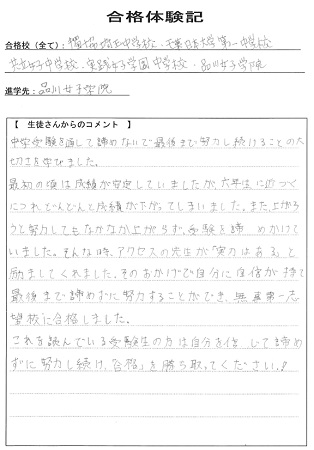 合格体験記
合格校（全て）: 獨協埼玉中学校・千葉日本大学第一中学校
共立女子中学校・実践女子学園中学校・品川女子学院
進学先: 品川女子学院
【 生徒さんからのコメント 】
中学受験を通して諦めないで最後まで努力し続けることの大
切さを学びました。
最初の頃は成績が安定していましたが、六年生に近づく
につれどんどんと成績が下がってしまいました。また上がろ
うと努力してもなかなか上がらず、受験を諦めかけて
いました。そんな時、アクセスの先生が「実力はある」と
励ましてくれました。そのおかげで自分に自信が持て
最後まで諦めずに努力することができ、無事第一志
望校に合格しました。
これを読んでいる受験生の方は自分を信じて諦め
ずに努力し続け、「合格」を勝ち取ってください!